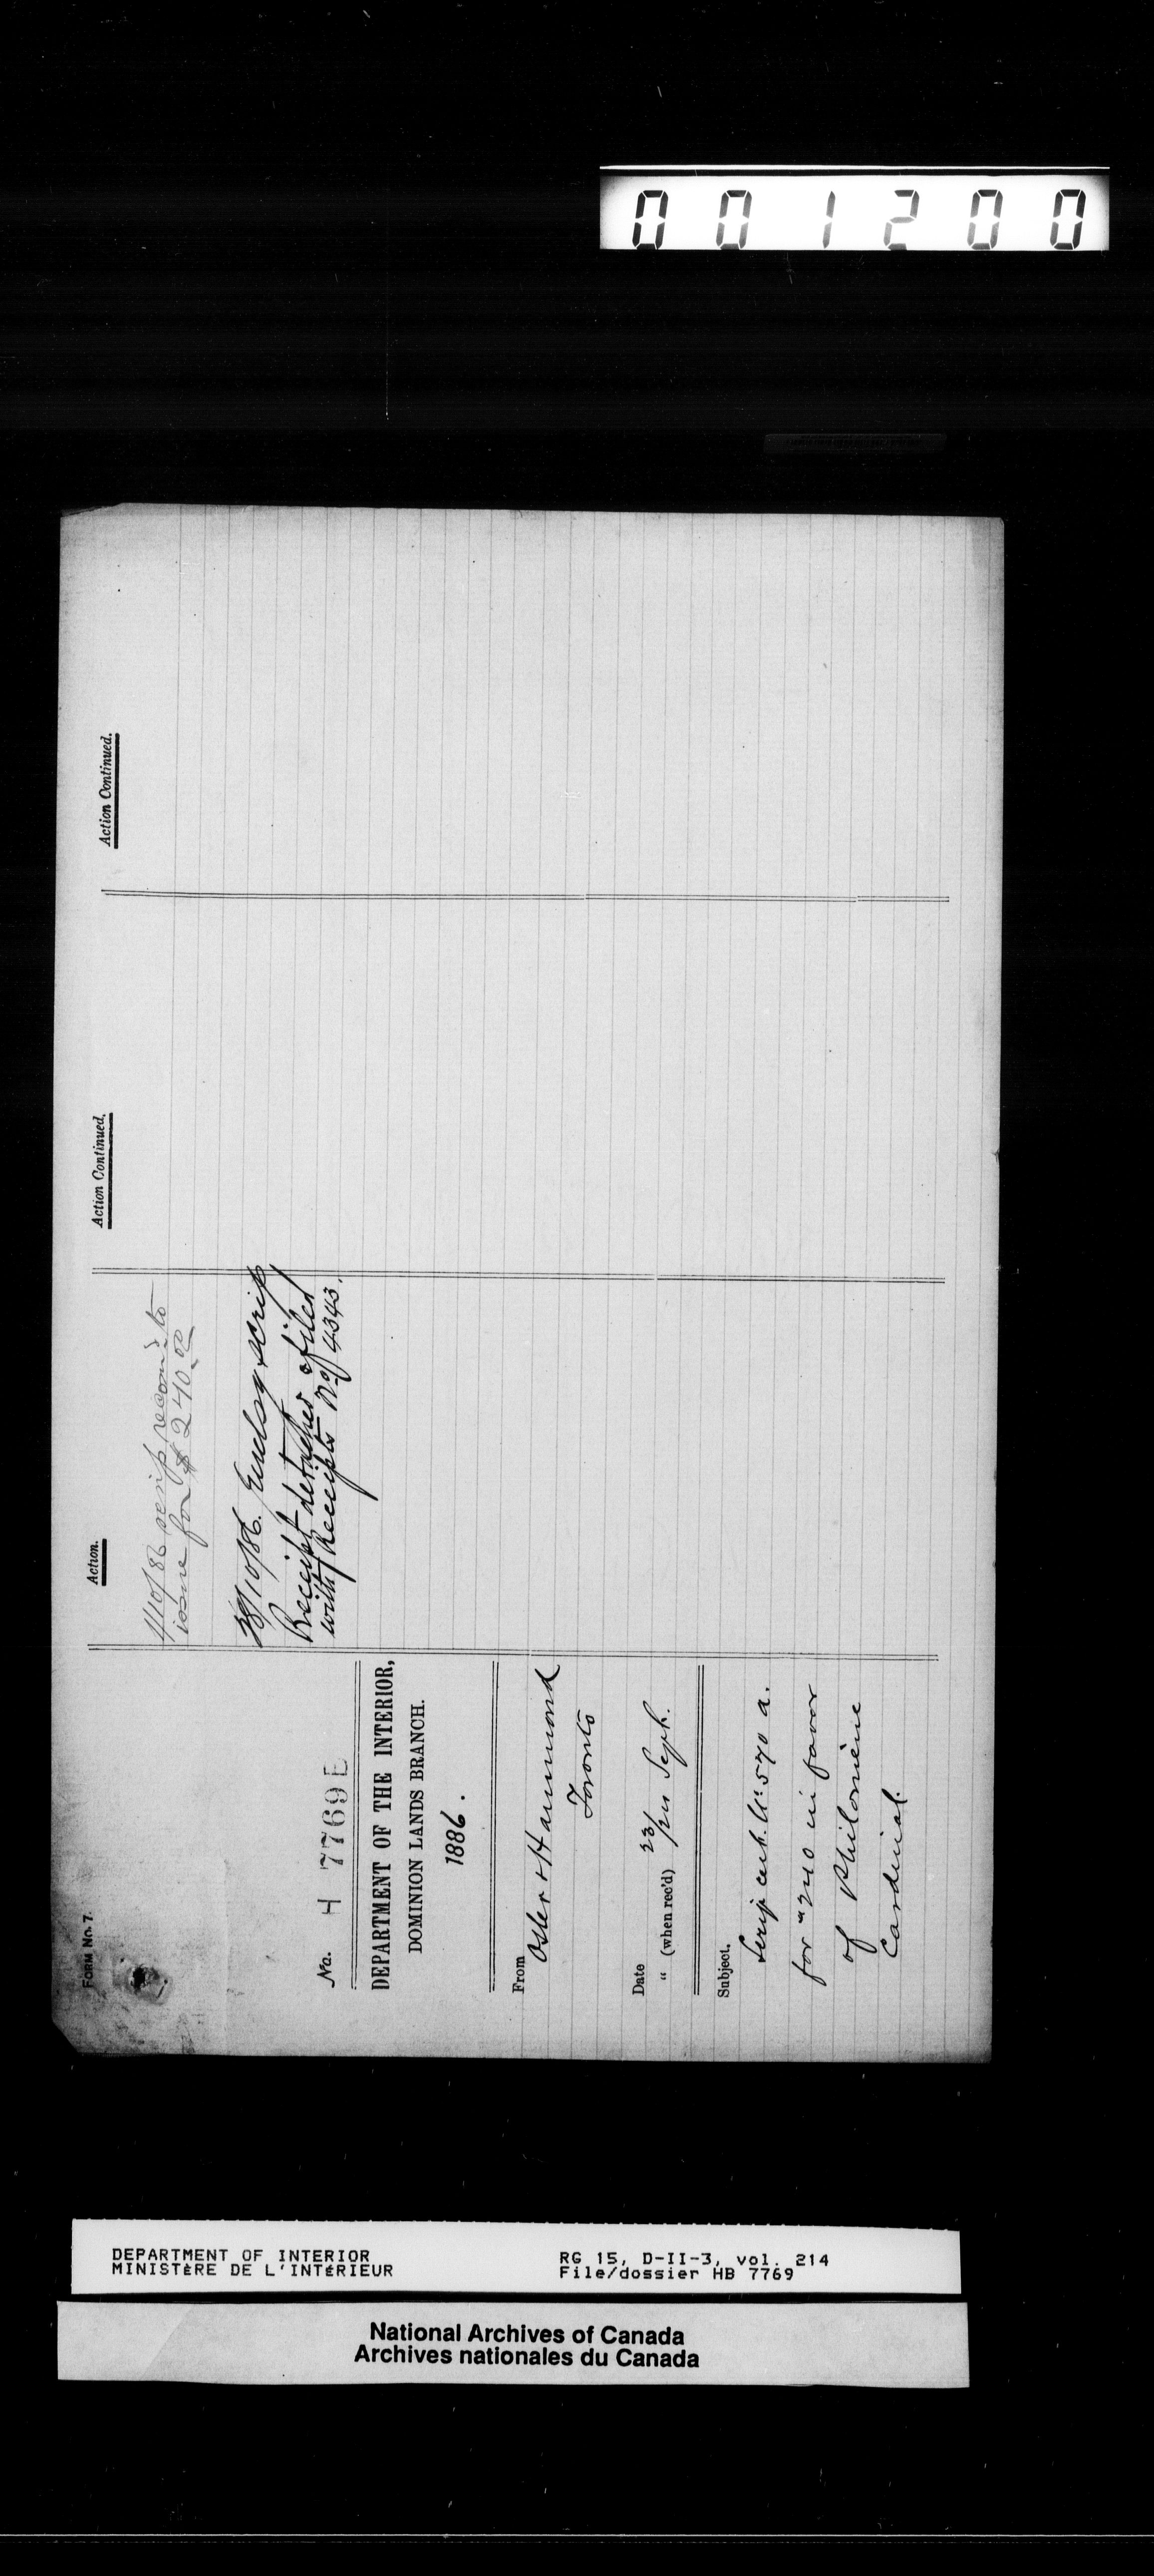 001200
FORM No. 7.
No. H 7769 B
DEPARTMENT OF THE INTERIOR,
DOMINION LANDS BRANCH.
1886.
From Osler & Hammond
Toronto
Date 23/24 Sept.
" (when rec'd)
Subject.
Scrip cert. No 570 a.
for $240 in favor
of Philomène
Cardinal.
Action.
4/10/86 scrip recom'd to
issue for $240.00
28/10/86. Enclosg scrip
Receipt detached & filed
with Receipts No 4343.
Action Continued.
Action Continued.
DEPARTMENT OF INTERIOR
MINISTÈRE DE L'INTÉRIEUR
RG 15, D-II-3, vol. 214
File/dossier HB 7769
National Archives of Canada
Archives nationales du Canada